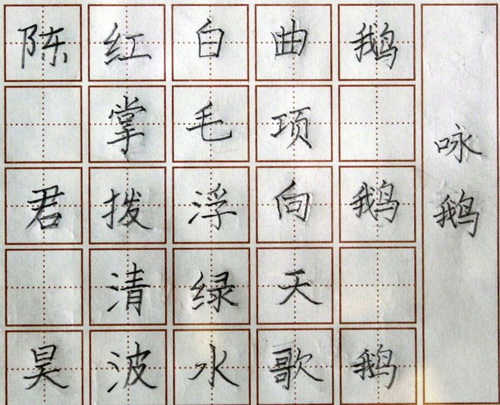 咏鹅
鹅鹅鹅
曲项向天歌
白毛浮绿水
红掌拨清波
陈君昊